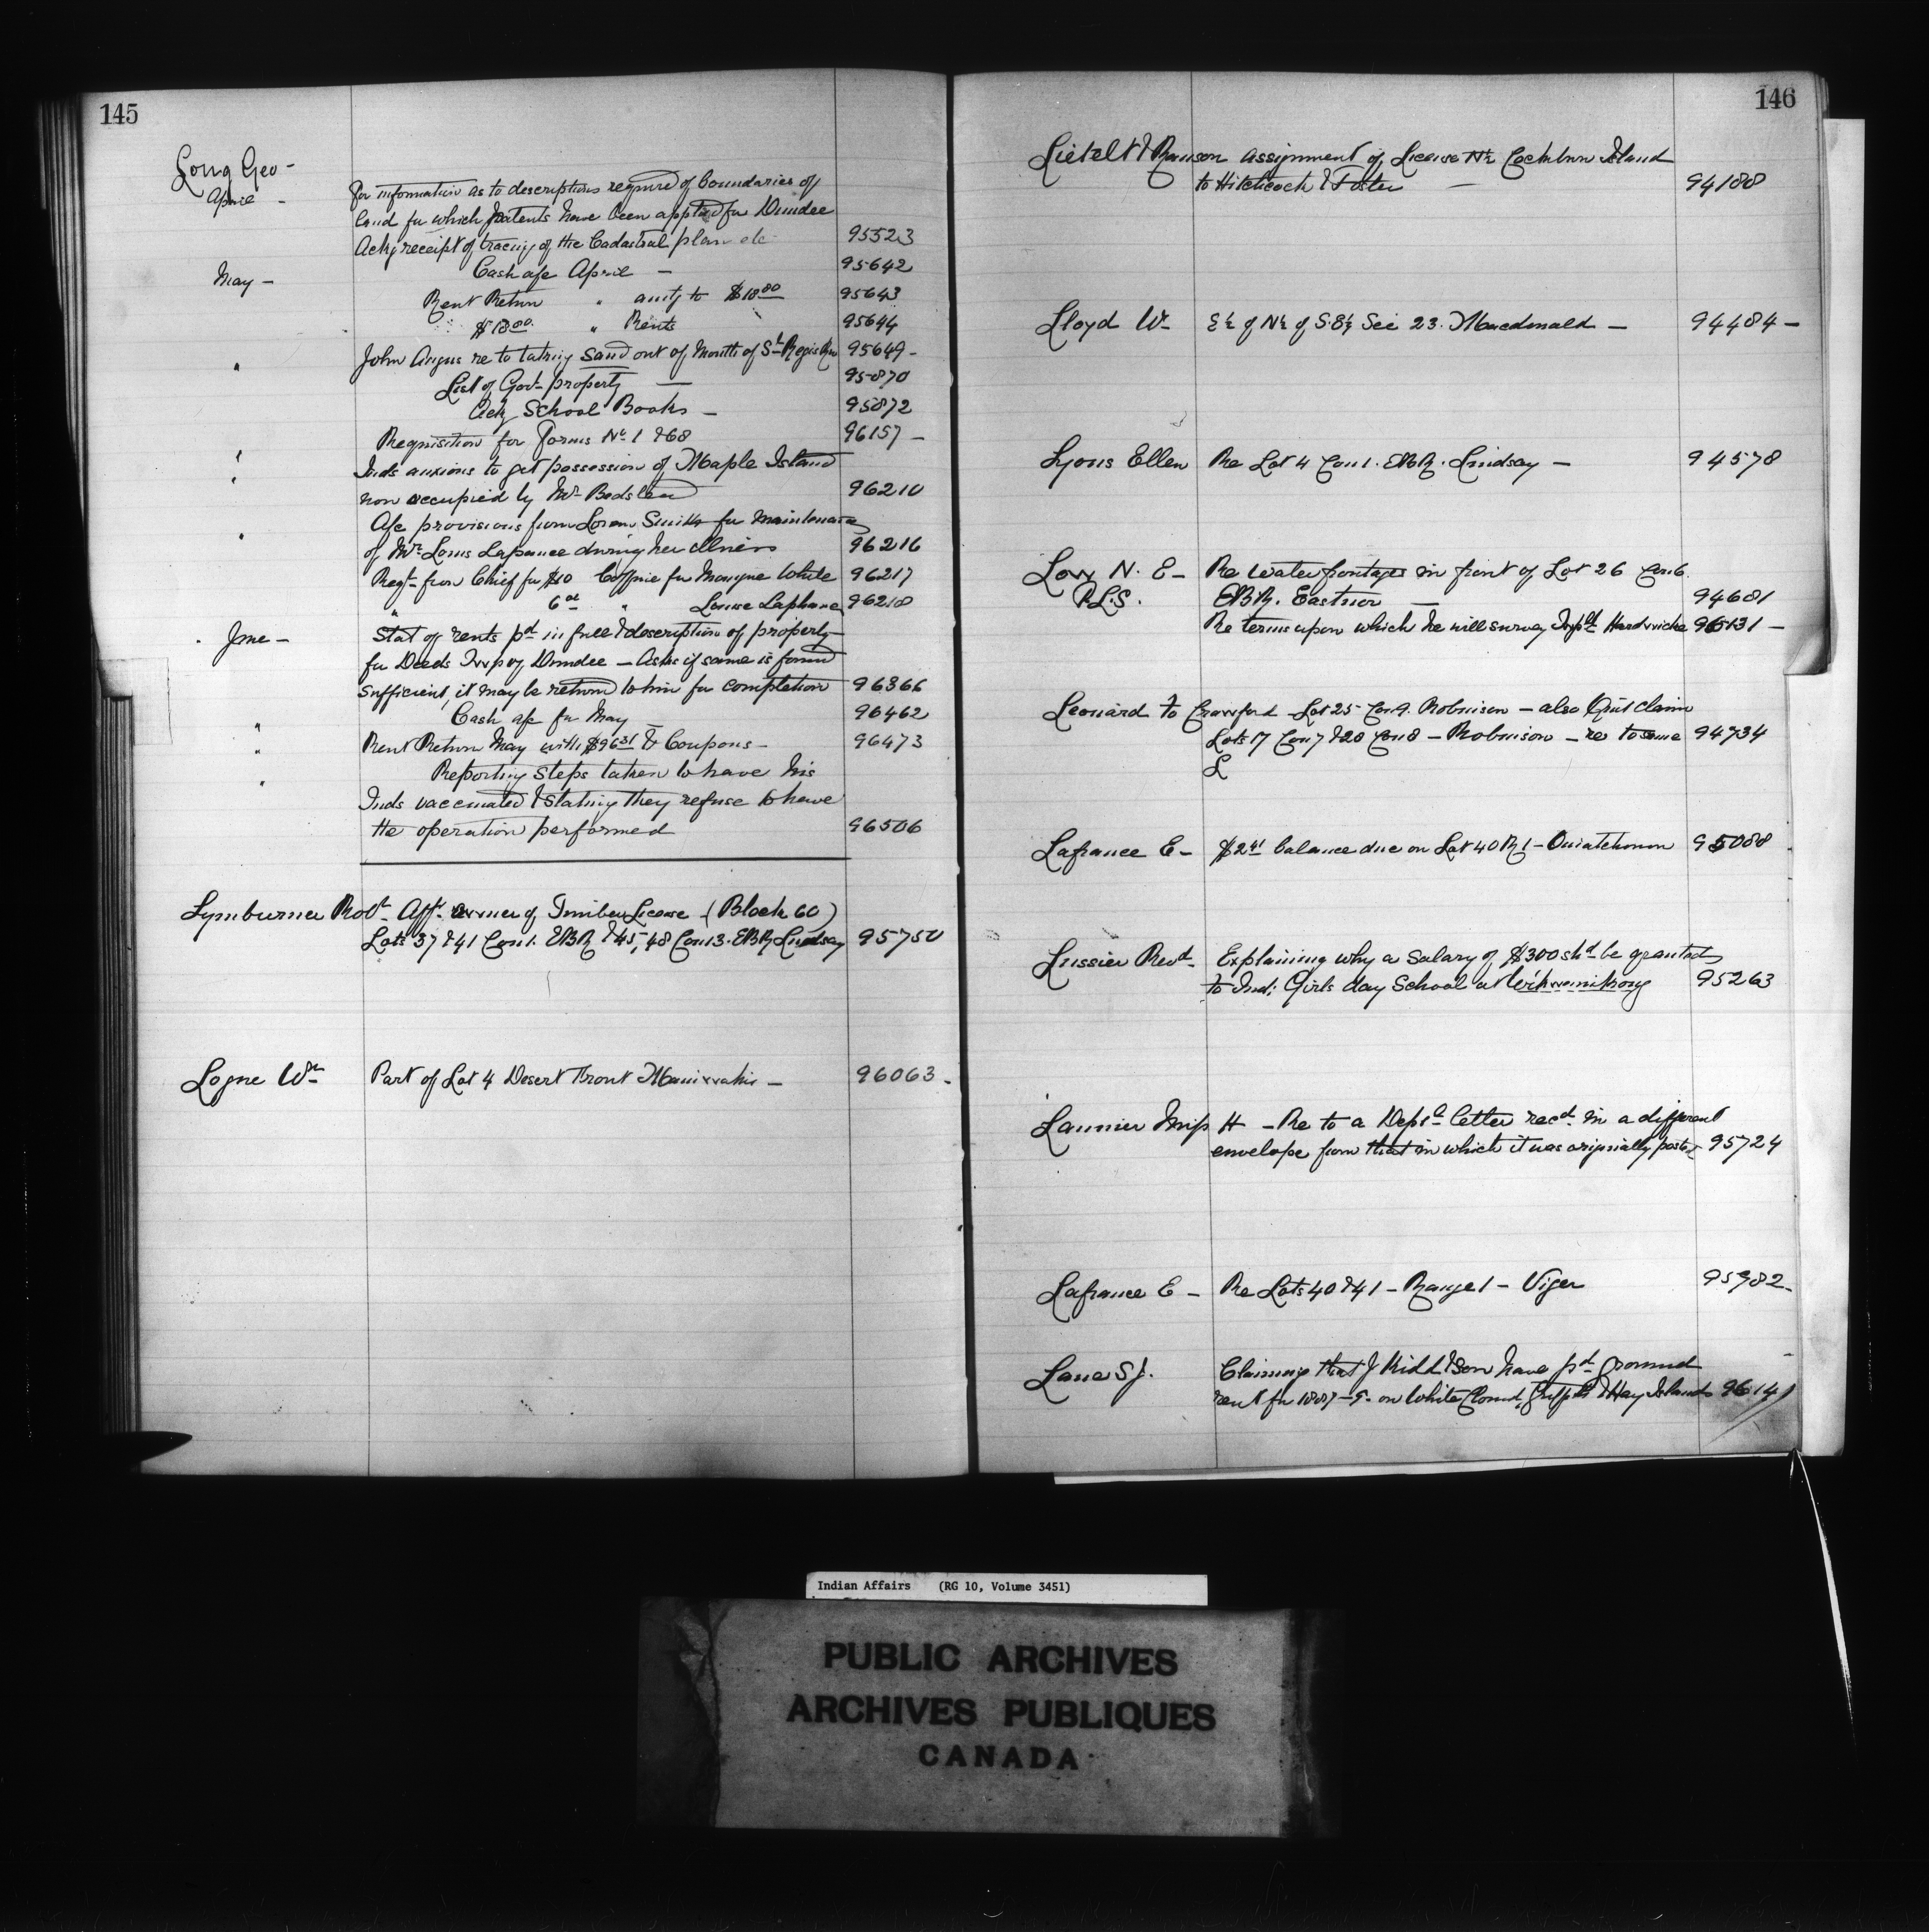 145
Long Geo -
April - For information as to descriptions required of boundaries of
land for which patents have been applied for Dundee
Ackg receipt of tracing of the Cadastral plan etc 95523
May - Cash a/c April - 95642
Rent Return " amtg to $18 80 95643
$18 00 " Rents 95644
" John Angus re to taking sand out of Mouth of St Regis Riv 95649 -
List of Govt property - 95870
Ackg School Books - 95872
" Requisition for Forms No 1 & 68 96157 -
" Inds anxious to get possession of Maple Island
now occupied by Mr Bedstead 96210
" A/c provisions from Loren Smith for maintenance
of Mrs Louis Lafrance during her illness 96216
Reqt from Chief for $10 Coffin for Monique White 96217
" 6 00 " Louise Laphane 96218
June - Stat of rents pd in full & description of property
for Deeds Twp of Dundee - Asks if same is found
sufficient, it may be returned to him for completion 96366
" Cash a/c for May - 96462
" Rent Return May with $96 31 & Coupons - 96473
" Reporting steps taken to have his
Inds vaccinated & stating they refuse to have
the operation performed 96506
Lymburner Robt Afft owner of Timber License (Block 60)
Lots 37 & 41 Con 1. EBR & 45, 48 Con 3. EBR Lindsay 95750
Logue Wm Part of Lot 4 Desert Front Maniwaki - 96063 -
146
Lietelt & Ranson assignment of License Cockburn Island
to Hitchcock & Foster - 94188
Lloyd Wm E½ of N½ of S.E¼ Sec 23. Macdonald - 94484 -
Lyons Ellen Re Lot 4 Con 1. EBR. Lindsay - 94578
Low N. E - Re water frontages in front of Lot 26 Con 6
P.L.S. EBR. Eastnor - 94681
Re terms upon which he will survey Twp of Hardwicke 95131 -
Leonard to Crawford Lot 25 Con 9. Robinson - also Quit claim
Lots 17 Con 7 & 28 Con 8 - Robinson - re to same 94734
L
Lafrance E - $2 41 balance due on Lot 40 R 1 - Ouiatchouan 95088
Lussier Revd Explaining why a salary of $300 shd be granted
to Ind: Girls day School at Wikwemikong 95263
Launier Miss H - Re to a Deptl letter recd in a different
envelope from that in which it was originally posted 95724
Lafrance E - Re Lots 40 & 41 - Range 1 - Viger 95982 -
Lane S J. Claiming that J Kidd & Son have pd ground
rent for 1887-9. on White Cloud, Griffith & Hay Islands 96141
Indian Affairs (RG 10, Volume 3451)
PUBLIC ARCHIVES
ARCHIVES PUBLIQUES
CANADA